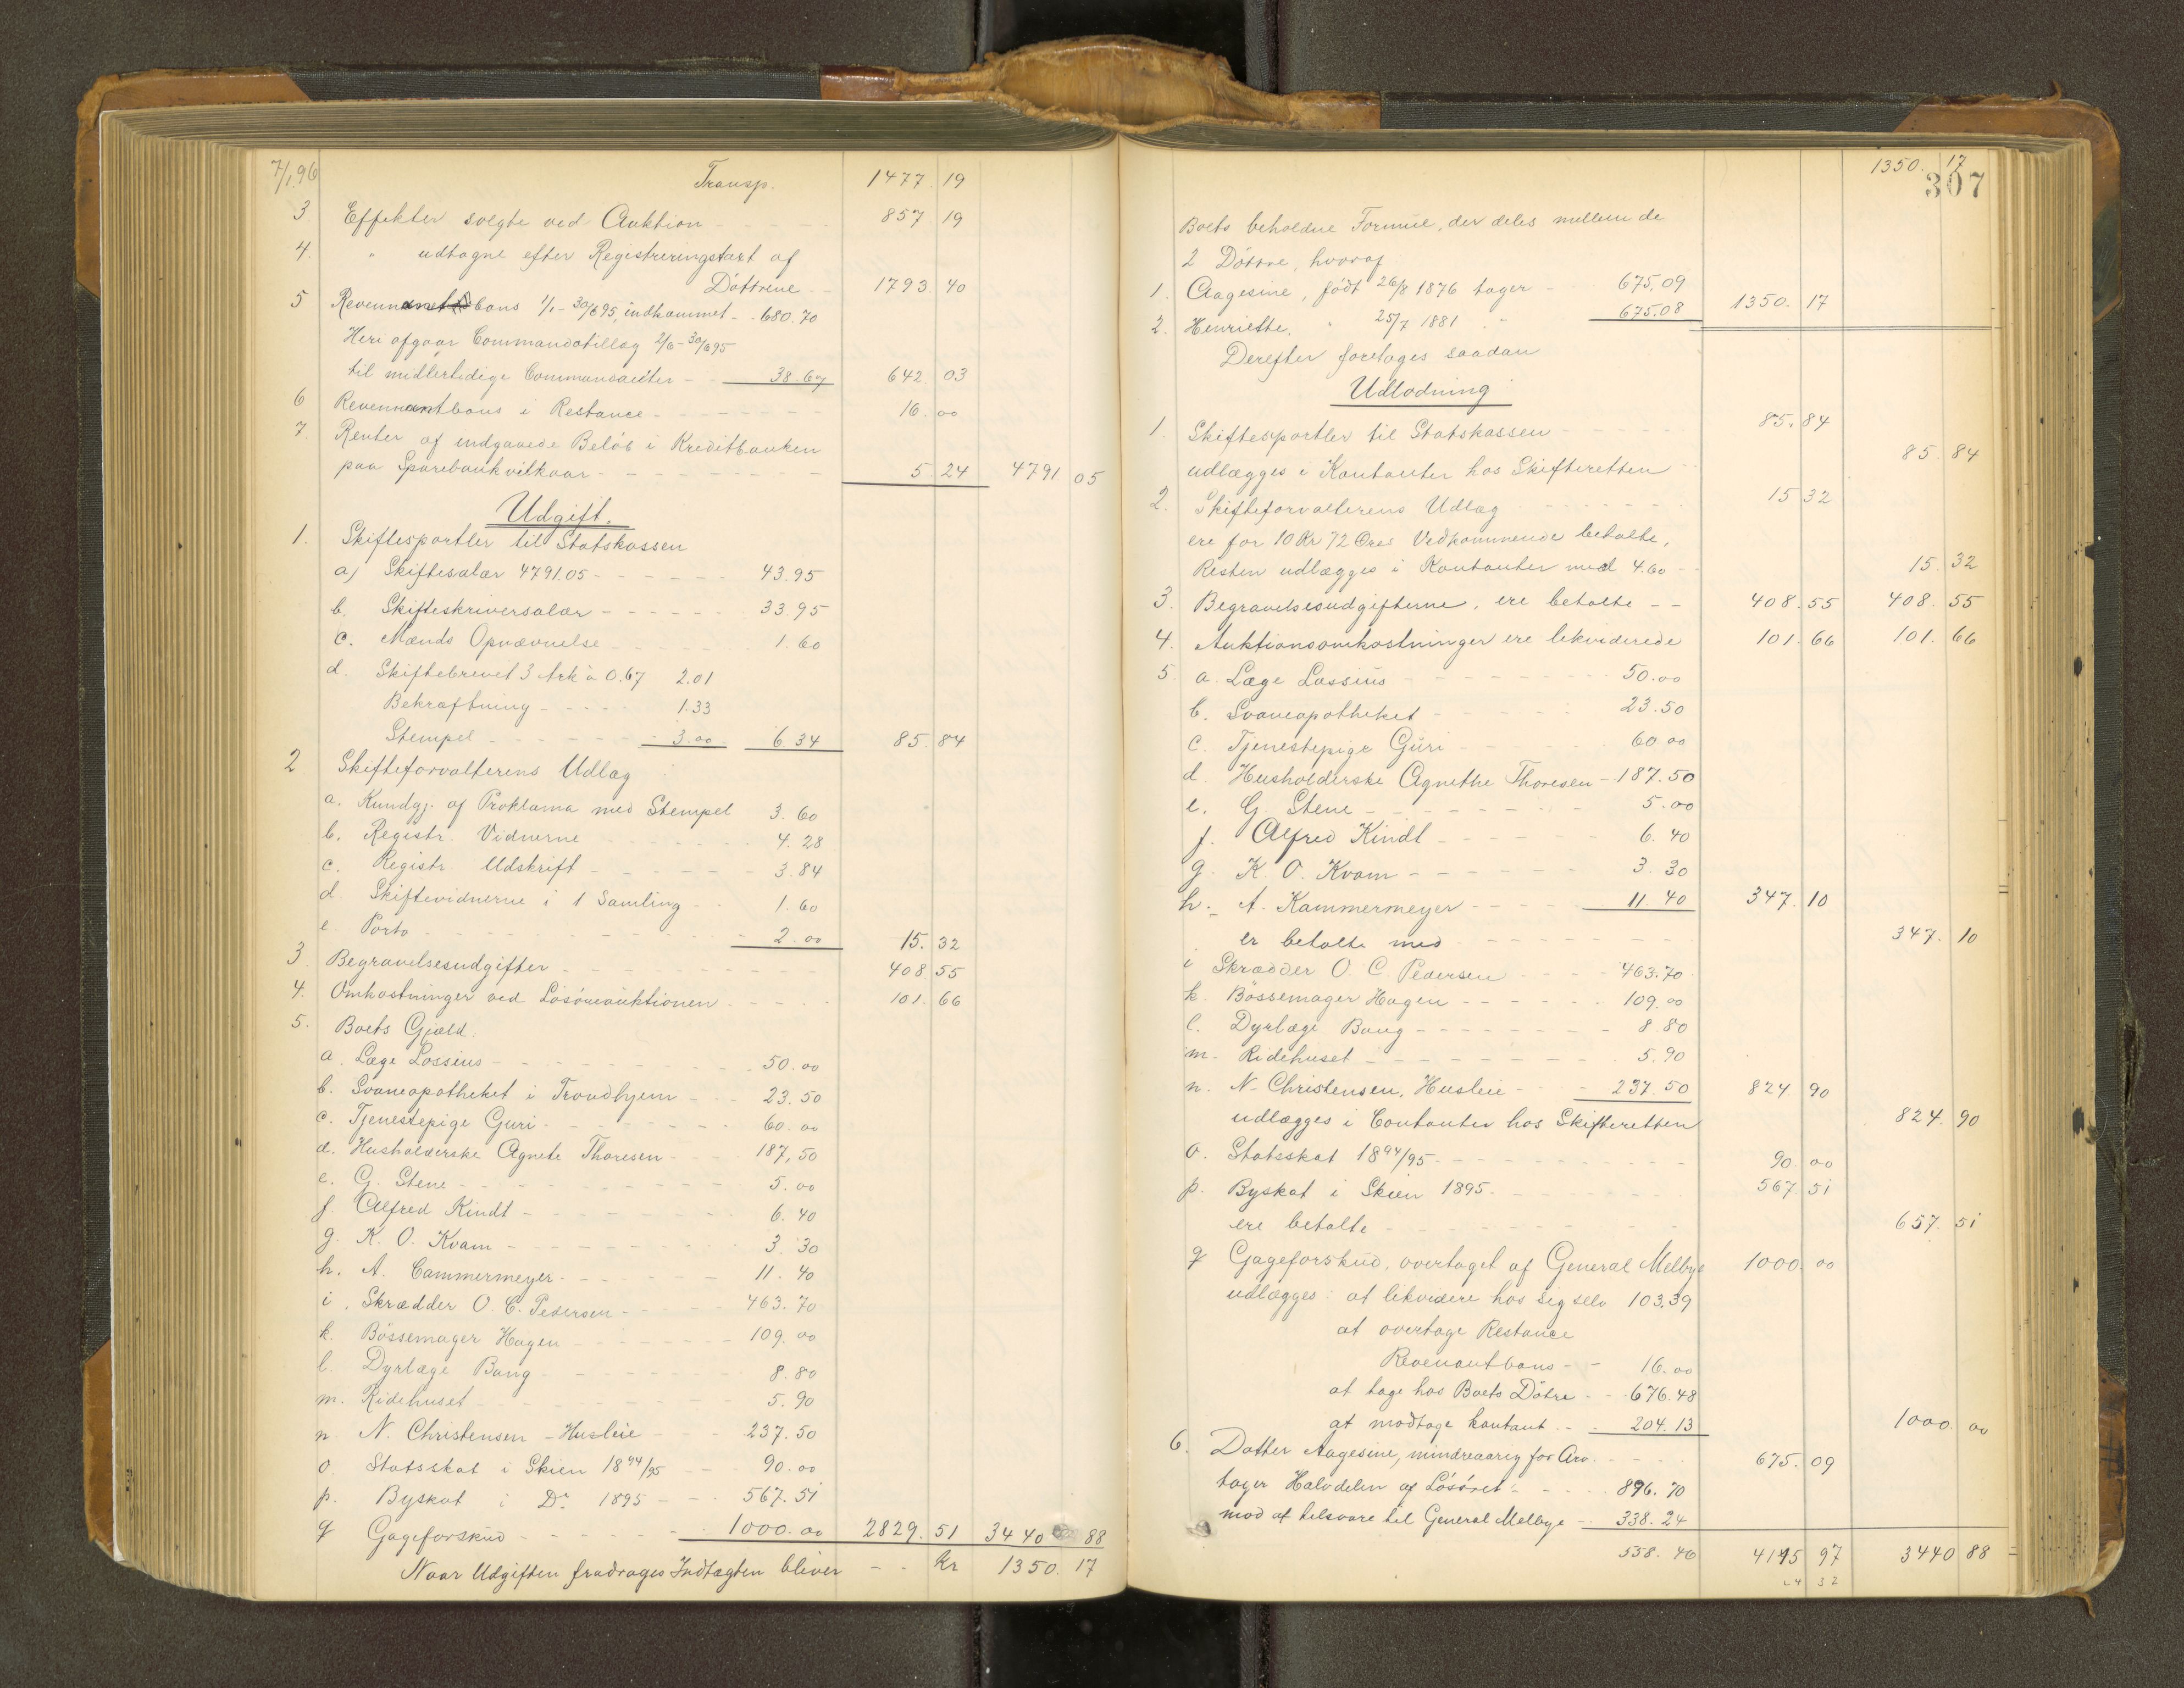 7/1.96
Transp. 1477.19
3 Effekter solgte ved Auktion - - - 857.19
4. " udtagne efter Registreringstaxt af
Døttrene - - 1793.40
5 Revennantbons 1/1 - 30/6 95, indkommet - 680.70
Heri afgaar Commandotillæg 2/6 - 30/6 95
til midlertidige Commandanter - 38.67 642.03
6 Revennantbons i Restance - - - 16.00
7. Renter af indgaaede Beløb i Kreditbanken
paa Sparebankvilkaar - - - 5.24 4791 05
Udgift.
1. Skiftesportler til Statskassen
a) Skiftesalær 4791.05 - - - 43.95
b. Skifteskriversalær - - - 33.95
c. Mænds Opnævnelse - - - 1.60
d. Skiftebrevet 3 Ark à 0.67 2.01
Bekræftning - - - 1.33
Stempel - - - 3.00 6.34 85.84
2 Skifteforvalterens Udlæg
a. Kundgj. af Proklama med Stempel 3.60
b. Registr. Vidnerne - - - 4.28
c. Registr. Udskrift - - - 3.84
d. Skiftevidnerne i 1 Samling - - 1.60
e. Porto - - - 2.00 15.32
3 Begravelsesudgifter - - - 408 55
4. Omkostninger ved Løsøreauktionen - - - 101.66
5. Boets Gjæld.
a. Læge Lossius - - - 50.00
b. Svaneapotheket i Trondhjem - - 23.50
c. Tjenestepige Guri - - - 60.00
d. Husholderske Agnete Thoresen - - 187,50
e. G. Stene - - - 5.00
f. Alfred Kindt - - - 6.40
g. K. O. Kvam - - - 3.30
h. A. Cammermeyer - - - 11.40
i. Skrædder O. C. Pedersen - - - 463.70
k. Bøssemager Hagen - - - 109.00
l. Dyrlæge Bang - - - 8.80
m. Ridehuset - - - 5.90
n. N. Christensen - Husleie - - - 237.50
o Statsskat i Skien 1894/95 - - 90.00
p. Byskat i Do 1895 - - - 567.51
q Gageforskud - - - 1000.00 2829.51 3440 88
Naar Udgiften fradrages Indtægten bliver - - kr 1350.17
1350.17
307
Boets beholdne Formue, der deles mellem de
2 Døttre, hvoraf
1. Aagesine, født 26/8 1876 tager - 675.09
2. Henriette, " 25/7 1881 " - 675.08 1350.17
Derefter foretages saadan
Udlodning
1. Skiftesportler til Statskassen - - - 85.84
udlægges i Kontanter hos Skifteretten - 85.84
2. Skifteforvalterens Udlæg - - - 15 32
ere for 10 Kr 72 Øres Vedkommende betalte,
Resten udlægges i Kontanter med 4.60 - - 15.32
3. Begravelsesudgifterne, ere betalte - - 408.55 408.55
4. Auktionsomkostninger ere likviderede 101.66 101.66
5. a. Læge Lossius - - - 50.00
b. Svaneapotheket - - - 23.50
c. Tjenestepige Guri - - - 60 00
d. Husholderske Agnethe Thoresen - 187.50
e. G. Stene - - - 5.00
f. Alfred Kindt - - - 6.40
g. K. O. Kvam - - - 3.30
h. A. Kammermeyer - - - 11.40 347.10
er betalte med - - - 347.10
i Skrædder O. C. Pedersen - - - 463.70
k. Bøssemager Hagen - - - 109.00
l. Dyrlæge Bang - - - 8.80
m. Ridehuset - - - 5.90
n. N. Christensen, Husleie - - - 237.50 824.90
udlægges i Contanter hos Skifteretten 824.90
o. Statsskat 1894/95 - - - 90.00
p. Byskat i Skien 1895. - - - 567.51
ere betalte - - - 657.51
q Gageforskud, overtaget af General Melbye 1000.00
udlægges: at likvidere hos sig selv 103.39
at overtage Restance
Revenantbons - - 16.00
at tage hos Boets Døtre - - 676.48
at modtage kontant - - 204.13 1000.00
6. Datter Aagesine, mindreaarig for Arv - - - 675.09
tager Halvdelen af Løsøret - - - 896.70
mod at tilsvare til General Melbye - - 338.24
558.46 4115 97 3440 88